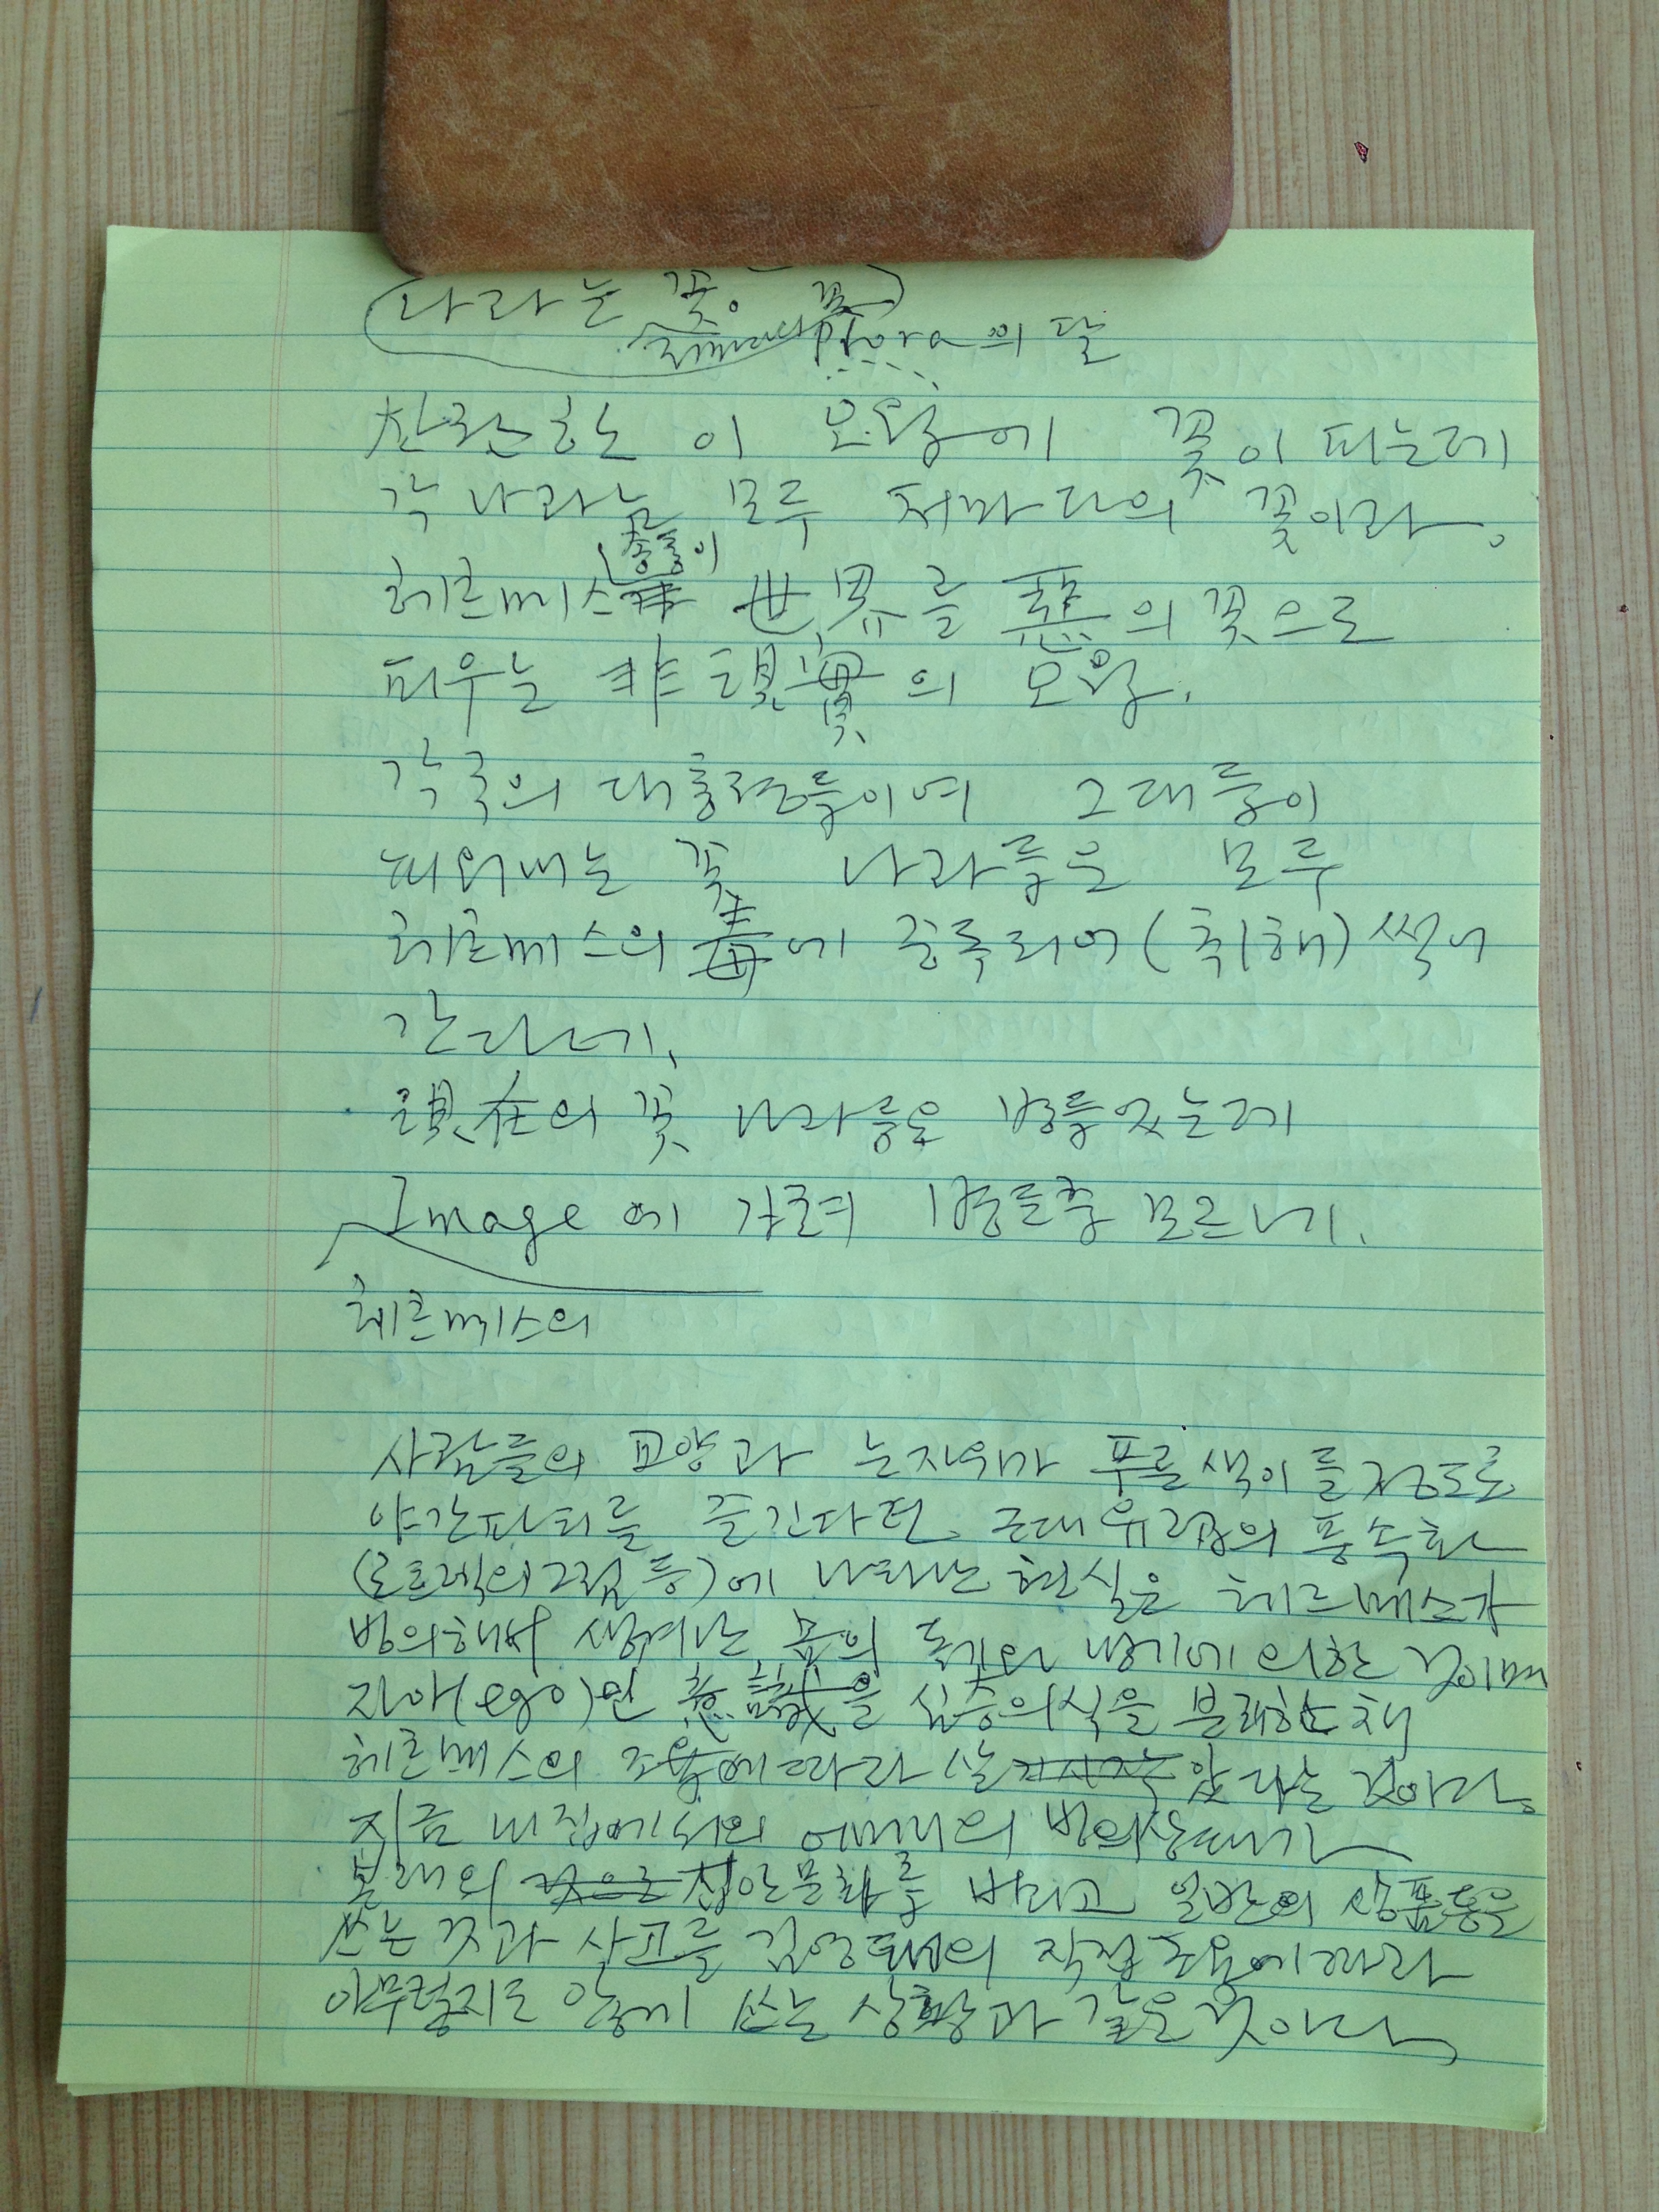 나라는 꽃。 꽃
phora의 달
찬란한 이 모양에 꽃이 피는데
각 나라는 모두 저마다의 꽃이라。
(충들이
헤르메스 世界를 惡의 꽃으로
피우는 非現實의 모양.
각국의 대통령들이여 그대들이
피워내는 꽃 나라들은 모두
헤르메스의 毒에 중독되어 (취해) 썩어
간다네.
現在의 꽃 나라들은 병들었는데
Image에 가려 병든줄 모르네.
헤르메스의
사람들의 교양과 눈자위가 푸를 색이 들정도로
야간파티를 즐긴다던 근대유럽의 풍속화
(로트렉의 그림 등)에 나타난 현실은 헤르메스가
빙의해서 생겨난 의 독기와 병기에 의한 것이며
자아(ego)인 意識을 심층의식을 분리한채
헤르메스의 조용에 따라 살 았다는 것이다。
지금 내집에서의 어머니의 빙의상태가
본래의 집안문화를 버리고 일반의 상품들을
쓰는 것과 사고를 김영태의 직접조용에 따라
아무렇지도 않게 쓰는 상황과 같은 것이다